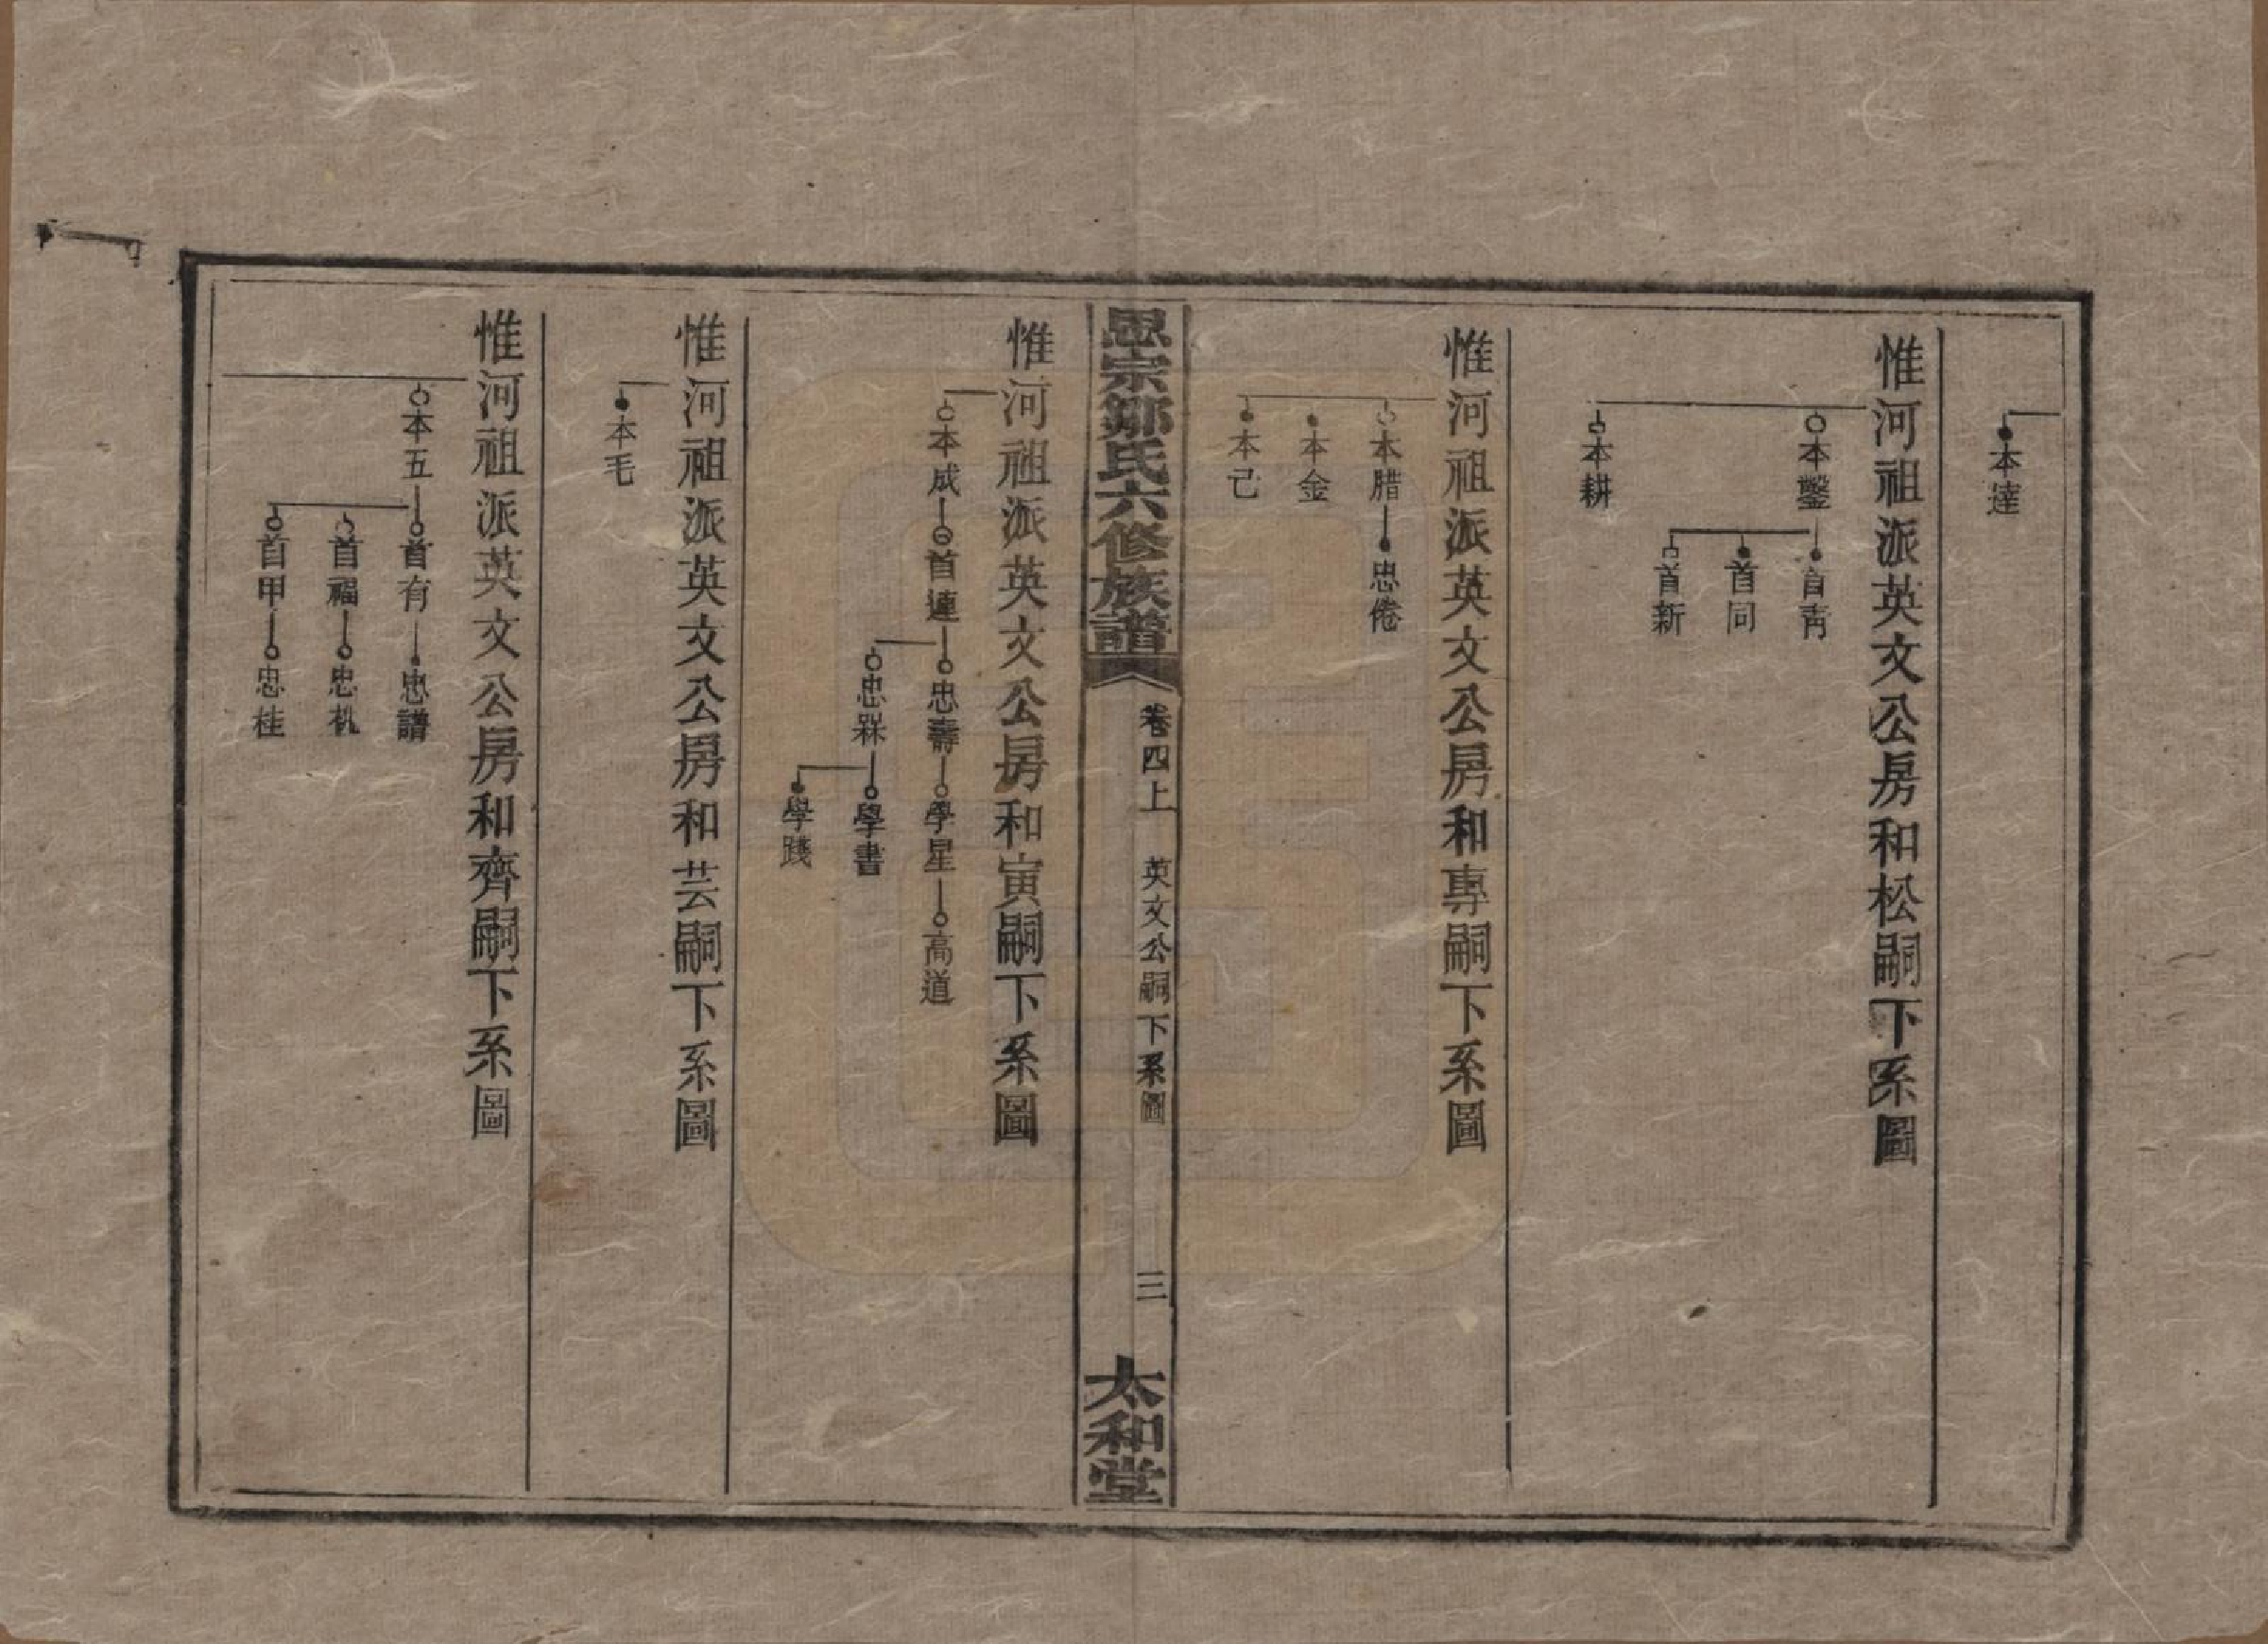 本達
惟河祖派英文公房和松嗣下系圖
本鑿
首靑
首同
首新
本耕
惟河祖派英文公房和專嗣下系圖
本腊
忠倦
本金
本己
思宗鄒氏六修族譜
卷四上
英文公嗣下系圖
三
太和堂
惟河祖派英文公房和寅嗣下系圖
本成
首連
忠壽
學星
高道
忠槑
學書
學踐
惟河祖派英文公房和芸嗣下系圖
本毛
惟河祖派英文公房和齊嗣下系圖
本五
首有
忠譜
首福
忠机
首甲
忠桂